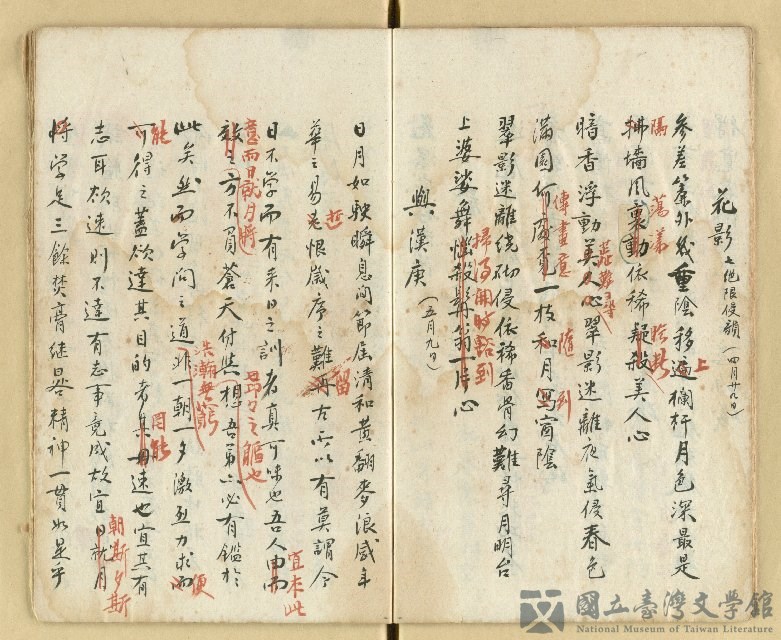 花影 七絕限侵韻(四月廿九日)
參差簾外幾重陰移遍欄杆月色深最是
拂墻風裏動依稀疑殺美人心
暗香浮動美人心翠影迷離夜氣侵春色
滿園何處一枝和月寫窗陰
翠影迷離繞砌侵依稀香骨幻難尋月明台
上婆娑舞惱殺翁一片心
與漢庚
(五月九日)
日月如駛瞬息間節屆清和黃翻麥浪感年
華之易老恨歲序之難再古所以有莫謂今
日不學而有來日之訓者真可味也吾人
之方不負蒼天付與想吾弟亦必有鑑於
此矣然而學問之道非一朝一夕激烈力求而
可得之蓋欲達其目的者其速也宜其有
志耳欲速則不達有志事竟成故宜日就月
將学足三餘焚膏继晷精神一貫如是乎
隔
蕩漾
上
傳畫意
隨
到
掃乃開時豁到
哲
留
意而日就月將
昂々之軀也
宜本此
浩瀚無窮
能
罔能
便
朝斯夕斯
國立臺灣文學館
National Museum of Taiwan Literature